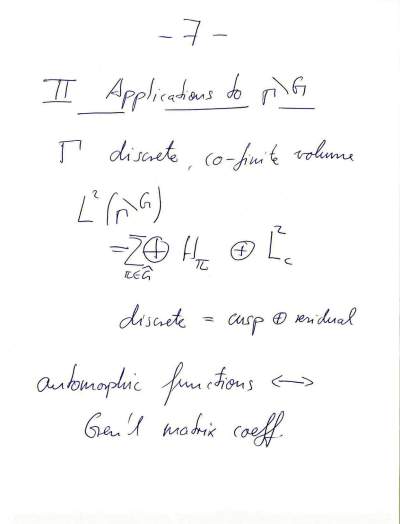 - 7 -
II Applications to Γ\G
Γ discrete, co-finite volume
L²(Γ\G)
= Σ⊕ H_π ⊕ L²_c
π∈Ĝ
discrete = cusp ⊕ residual
automorphic functions ↔
Gen'l matrix coeff.